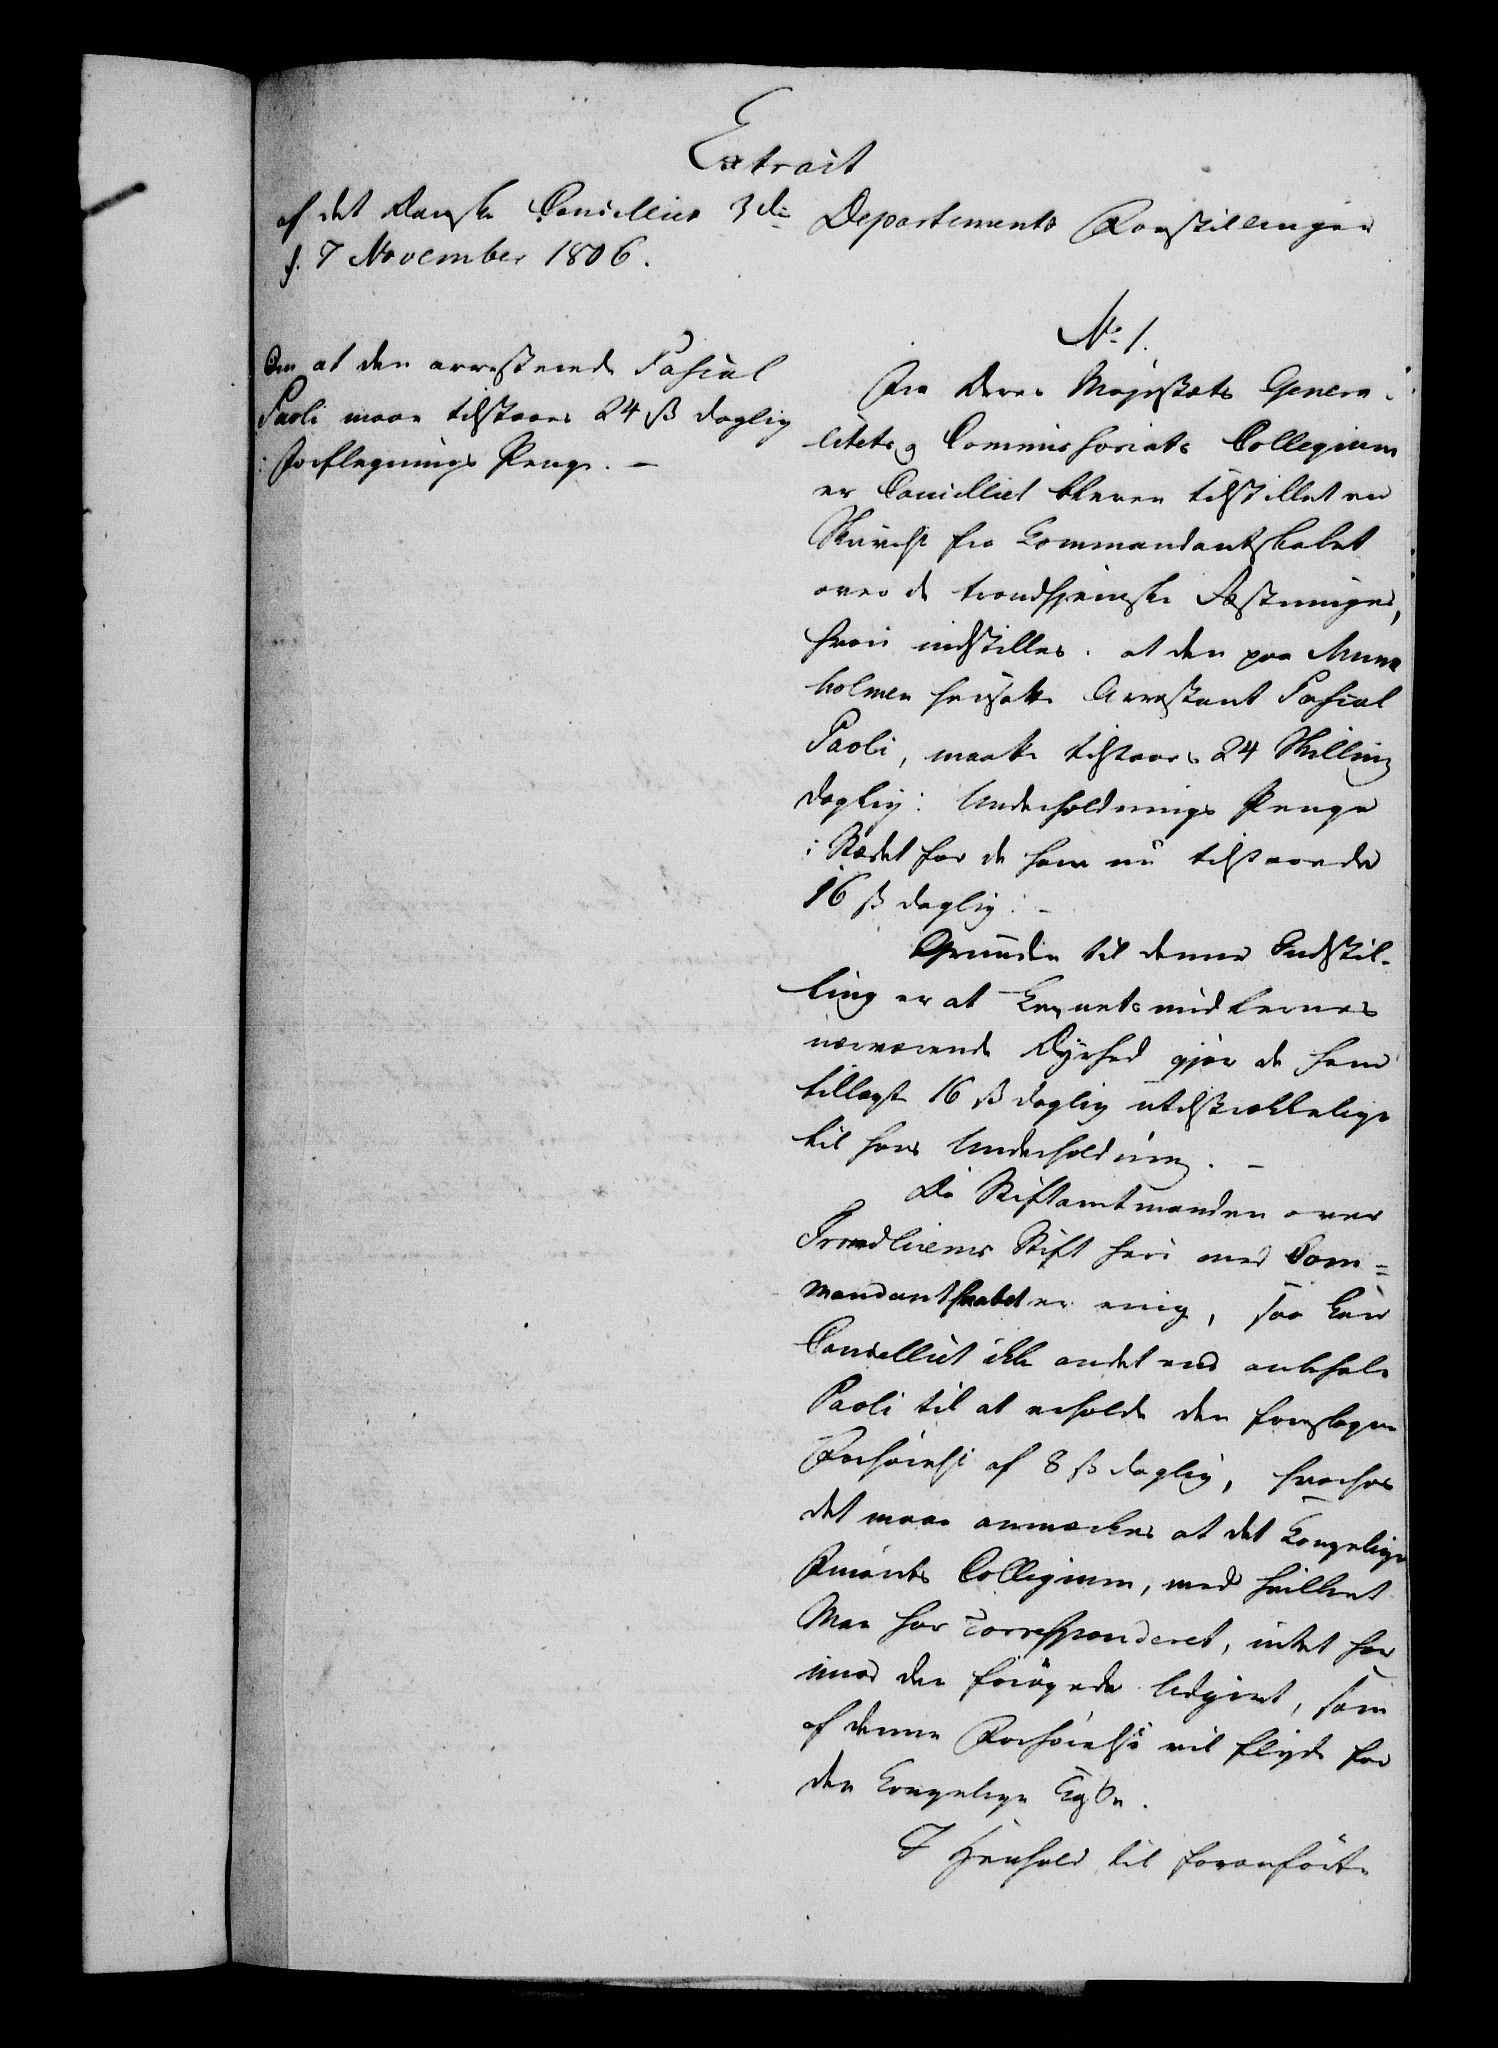 Extrait
af det Danske Cancellies 3die Departements Forestillinger
d. 7 November 1806.
Om at den arresterede Pascal
Paoli maae tilstaaes 24 ß daglig
i Forflegnings Penge. –
No 1.
Fra Deres Majestæts Genera-
litets og Commissariats Collegium
er Cancelliet bleven tilstillet en
Skrivelse fra Kommandantskabet
over de trondhjemske Fæstninger,
hvori indstilles, at den paa Munk
holmen hensatte Arrestant Pascal
Paoli, maatte tilstaaes 24 Skilling
daglig i Underholdnings Penge
i Stedet for de ham nu tilstaaede
16 ß daglig. –
Grunden til denne Indstil-
ling er at Levnetsmidlernes
nærværende Dyrhed gjør de ham
tillagte 16 ß daglig utilstrækkelige
til hans Underholdning. –
Da Stiftamtmanden over
Trondhiems Stift heri med Com=
mandantskabet er enig, saa kan
Cancelliet ikke andet end anbefale
Paoli til at erholde den foreslagne
Forhøielse af 8 ß daglig, hvorhos
det maae anmærkes at det Kongelige
Finants Collegium, med hvilket
Man har corresponderet, intet har
imod den forøgede Udgivt, som
af denne Forhøielse vil flyde for
den Kongelige Casse.
I Henhold til foranførte